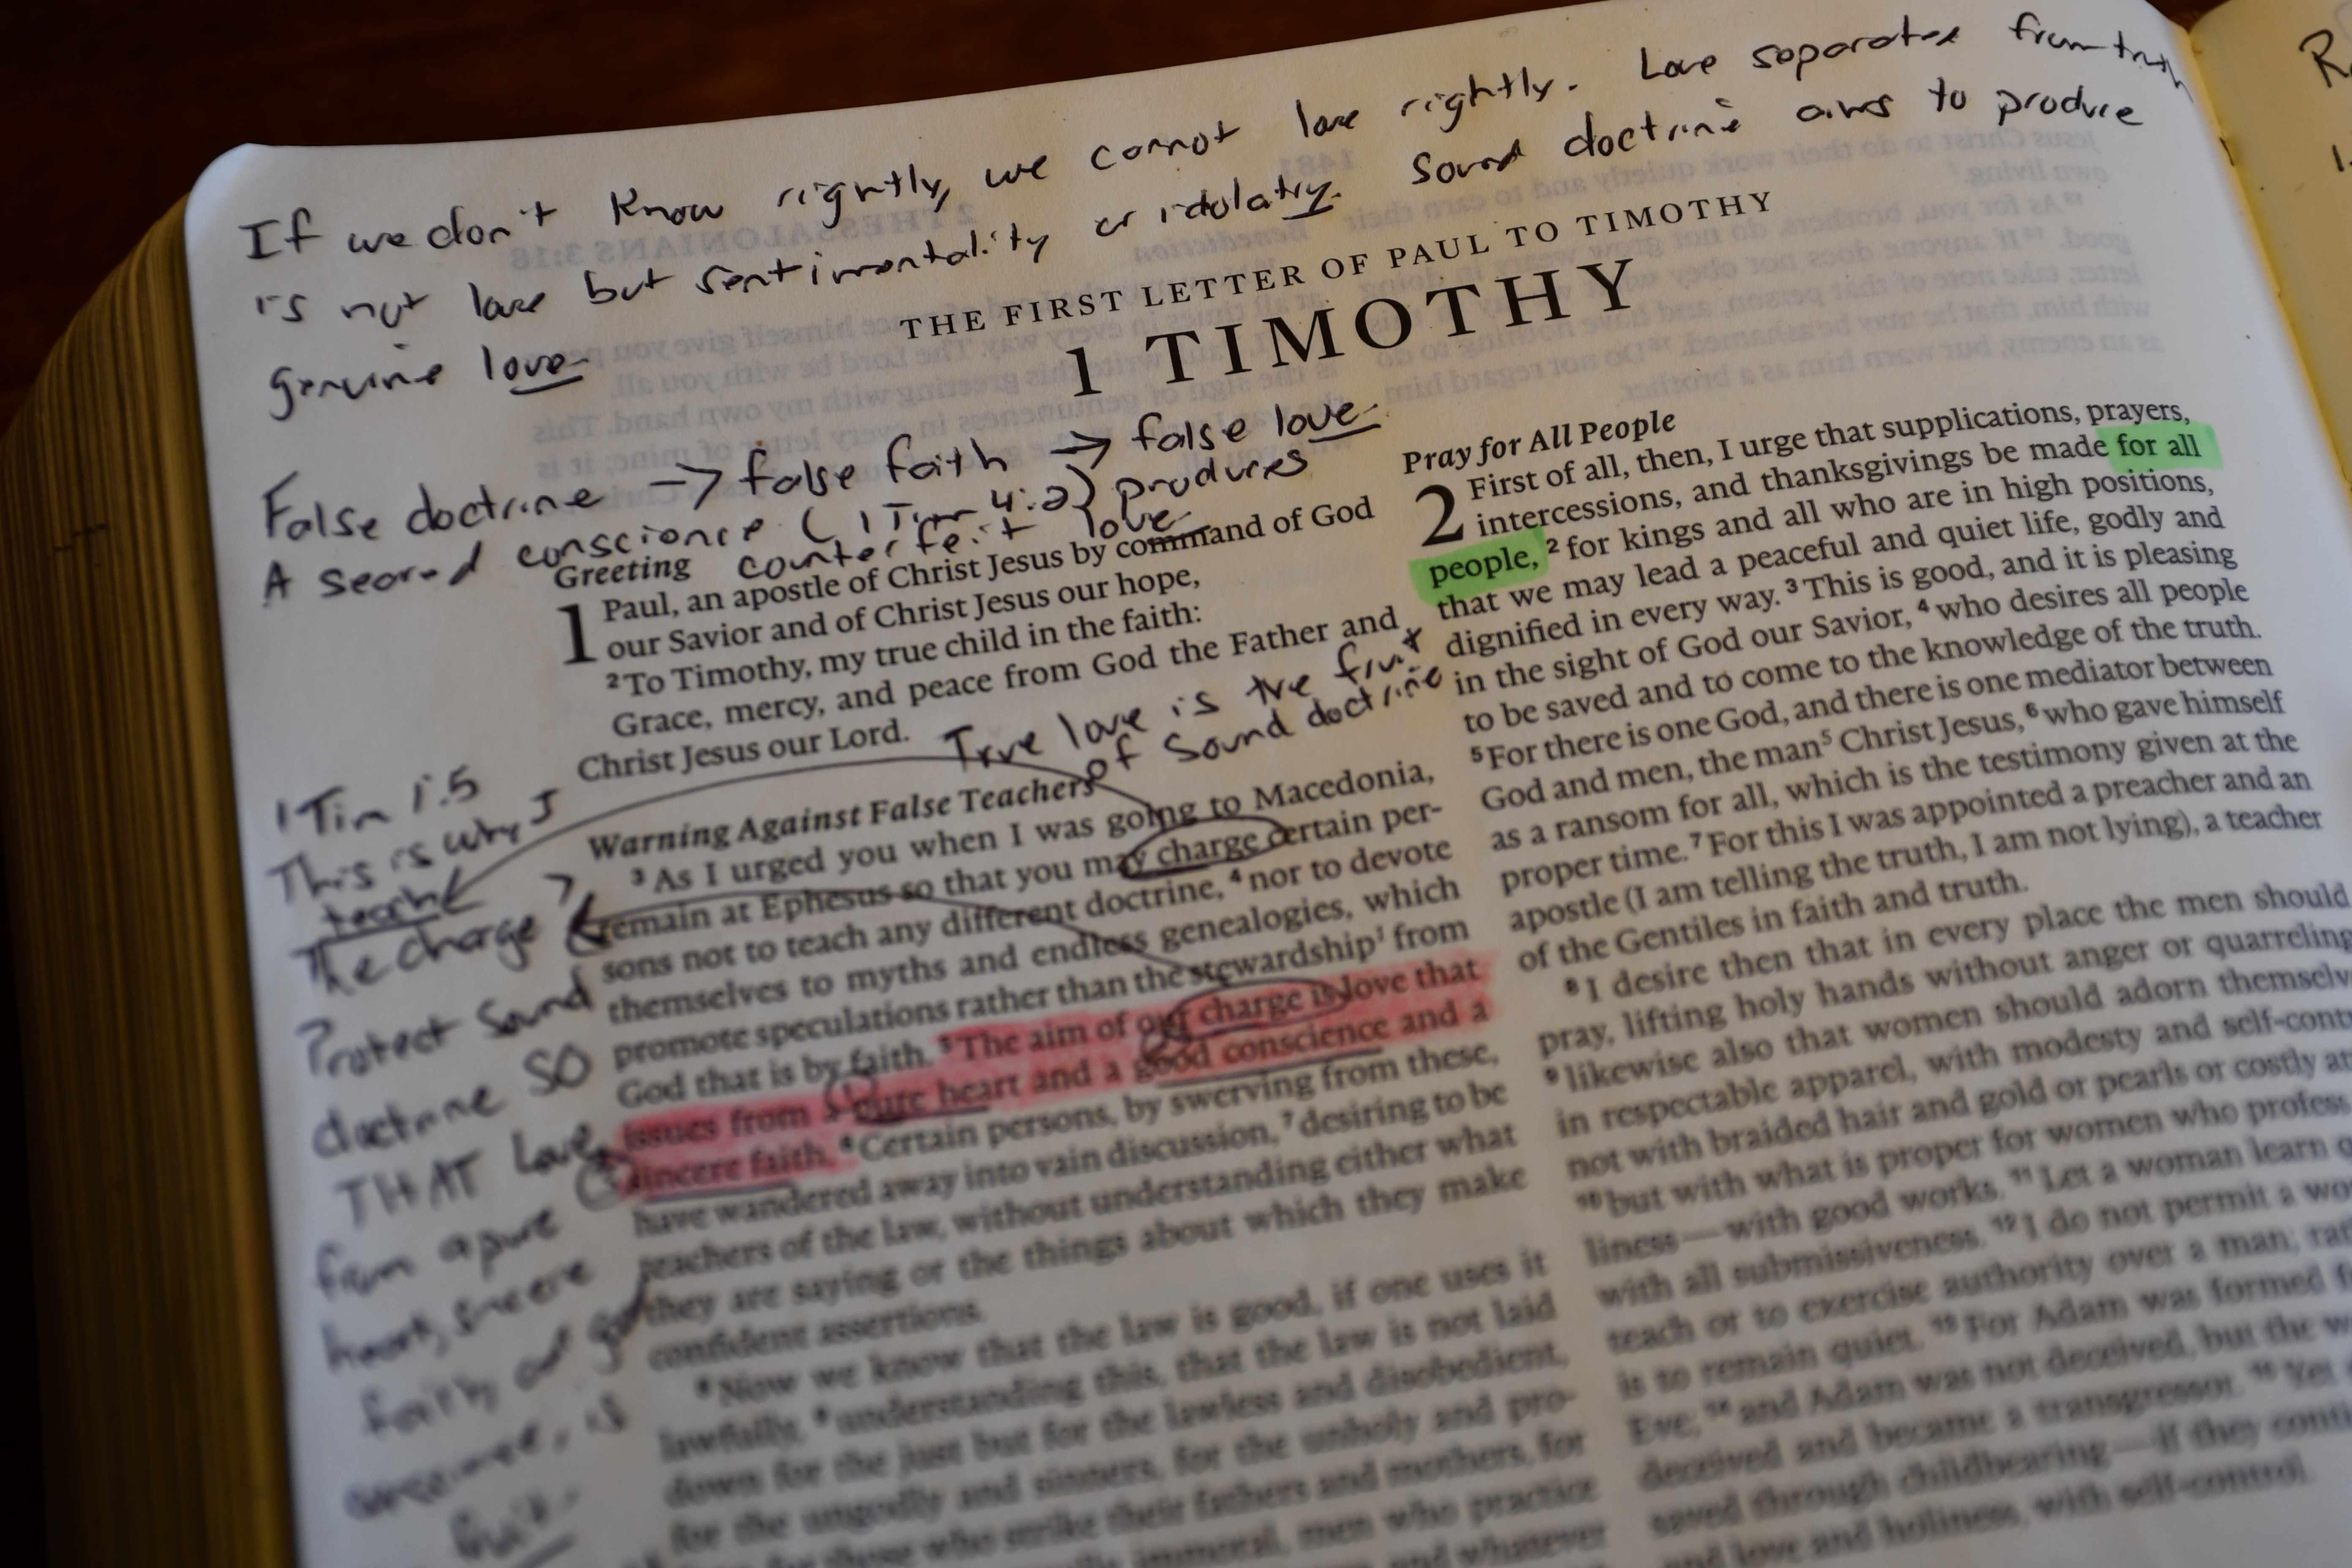 If we don't know rightly, we cannot love rightly. Love separated from truth
is not love but sentimentality or idolatry. Sound doctrine aims to produce
genuine love.
THE FIRST LETTER OF PAUL TO TIMOTHY
1 TIMOTHY
False doctrine → false faith → false love.
A seared conscience (1 Tim 4:2) produces
counterfeit love
Greeting
1 Paul, an apostle of Christ Jesus by command of God
our Savior and of Christ Jesus our hope,
2 To Timothy, my true child in the faith:
Grace, mercy, and peace from God the Father and
Christ Jesus our Lord.
True love is the fruit
of sound doctrine
1 Tim 1:5
This is why I
teach
The charge?
Protect sound
doctrine SO
THAT love
from a pure
heart, sincere
faith, and good
conscience, is
fruit.
Warning Against False Teachers
3 As I urged you when I was going to Macedonia,
remain at Ephesus so that you may charge certain per-
sons not to teach any different doctrine, 4 nor to devote
themselves to myths and endless genealogies, which
promote speculations rather than the stewardship1 from
God that is by faith. 5 The aim of our charge is love that
issues from a pure heart and a good conscience and a
sincere faith. 6 Certain persons, by swerving from these,
have wandered away into vain discussion, 7 desiring to be
teachers of the law, without understanding either what
they are saying or the things about which they make
confident assertions.
8 Now we know that the law is good, if one uses it
lawfully, 9 understanding this, that the law is not laid
down for the just but for the lawless and disobedient,
for the ungodly and sinners, for the unholy and pro-
for those who strike their fathers and mothers, for
immoral, men who practice
and whatever
Pray for All People
2 First of all, then, I urge that supplications, prayers,
intercessions, and thanksgivings be made for all
people, 2 for kings and all who are in high positions,
that we may lead a peaceful and quiet life, godly and
dignified in every way. 3 This is good, and it is pleasing
in the sight of God our Savior, 4 who desires all people
to be saved and to come to the knowledge of the truth.
5 For there is one God, and there is one mediator between
God and men, the man5 Christ Jesus, 6 who gave himself
as a ransom for all, which is the testimony given at the
proper time. 7 For this I was appointed a preacher and an
apostle (I am telling the truth, I am not lying), a teacher
of the Gentiles in faith and truth.
8 I desire then that in every place the men should
pray, lifting holy hands without anger or quarreling
9 likewise also that women should adorn themselv
in respectable apparel, with modesty and self-cont
not with braided hair and gold or pearls or costly at
10 but with what is proper for women who profess
liness—with good works. 11 Let a woman learn q
with all submissiveness. 12 I do not permit a wo
teach or to exercise authority over a man; rat
is to remain quiet. 13 For Adam was formed f
Eve; 14 and Adam was not deceived, but the w
deceived and became a transgressor. 15 Yet
saved through childbearing—if they conti
and love and holiness, with self-control.